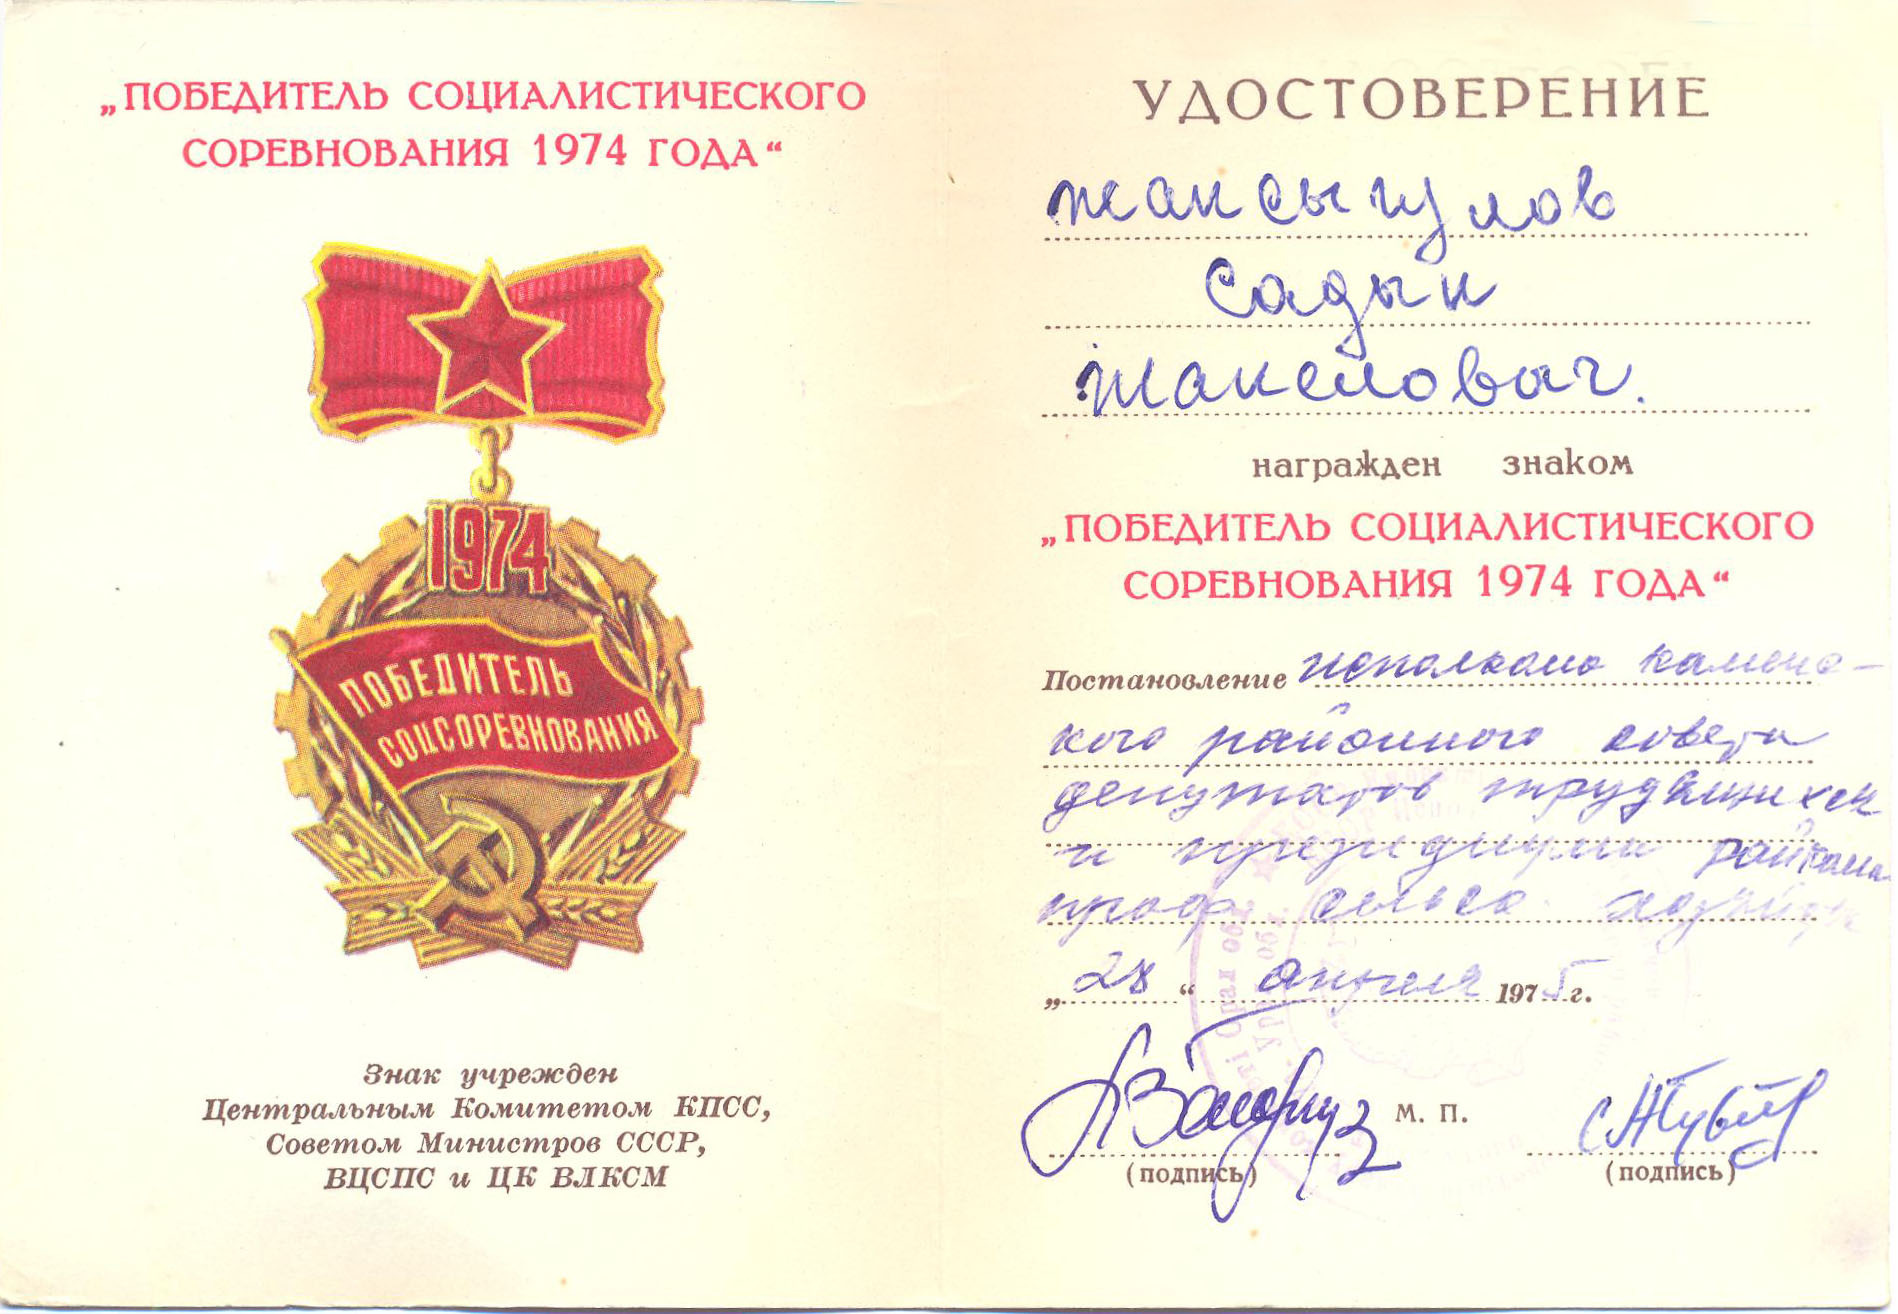 „ПОБЕДИТЕЛЬ СОЦИАЛИСТИЧЕСКОГО
СОРЕВНОВАНИЯ 1974 ГОДА“
1974
ПОБЕДИТЕЛЬ
СОЦСОРЕВНОВАНИЯ
Знак учрежден
Центральным Комитетом КПСС,
Советом Министров СССР,
ВЦСПС и ЦК ВЛКСМ
УДОСТОВЕРЕНИЕ
Жаксыгулов
Садык
награжден знаком
„ПОБЕДИТЕЛЬ СОЦИАЛИСТИЧЕСКОГО
СОРЕВНОВАНИЯ 1974 ГОДА“
Постановление исполкома Каменс-
кого районного совета
депутатов трудящихся
и президиума райкома
проф. сельхо. хозяйства
„28“ апреля 1975 г.
М. П.
(подпись) (подпись)